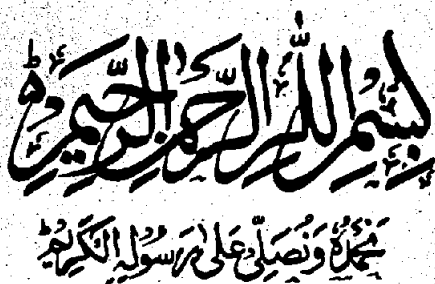 بِسْمِ اللّٰهِ الرَّحْمٰنِ الرَّحِيْمِ ط
نَحْمَدُهٗ وَنُصَلِّیْ عَلٰی رَسُوْلِهِ الْكَرِيْمِ ط